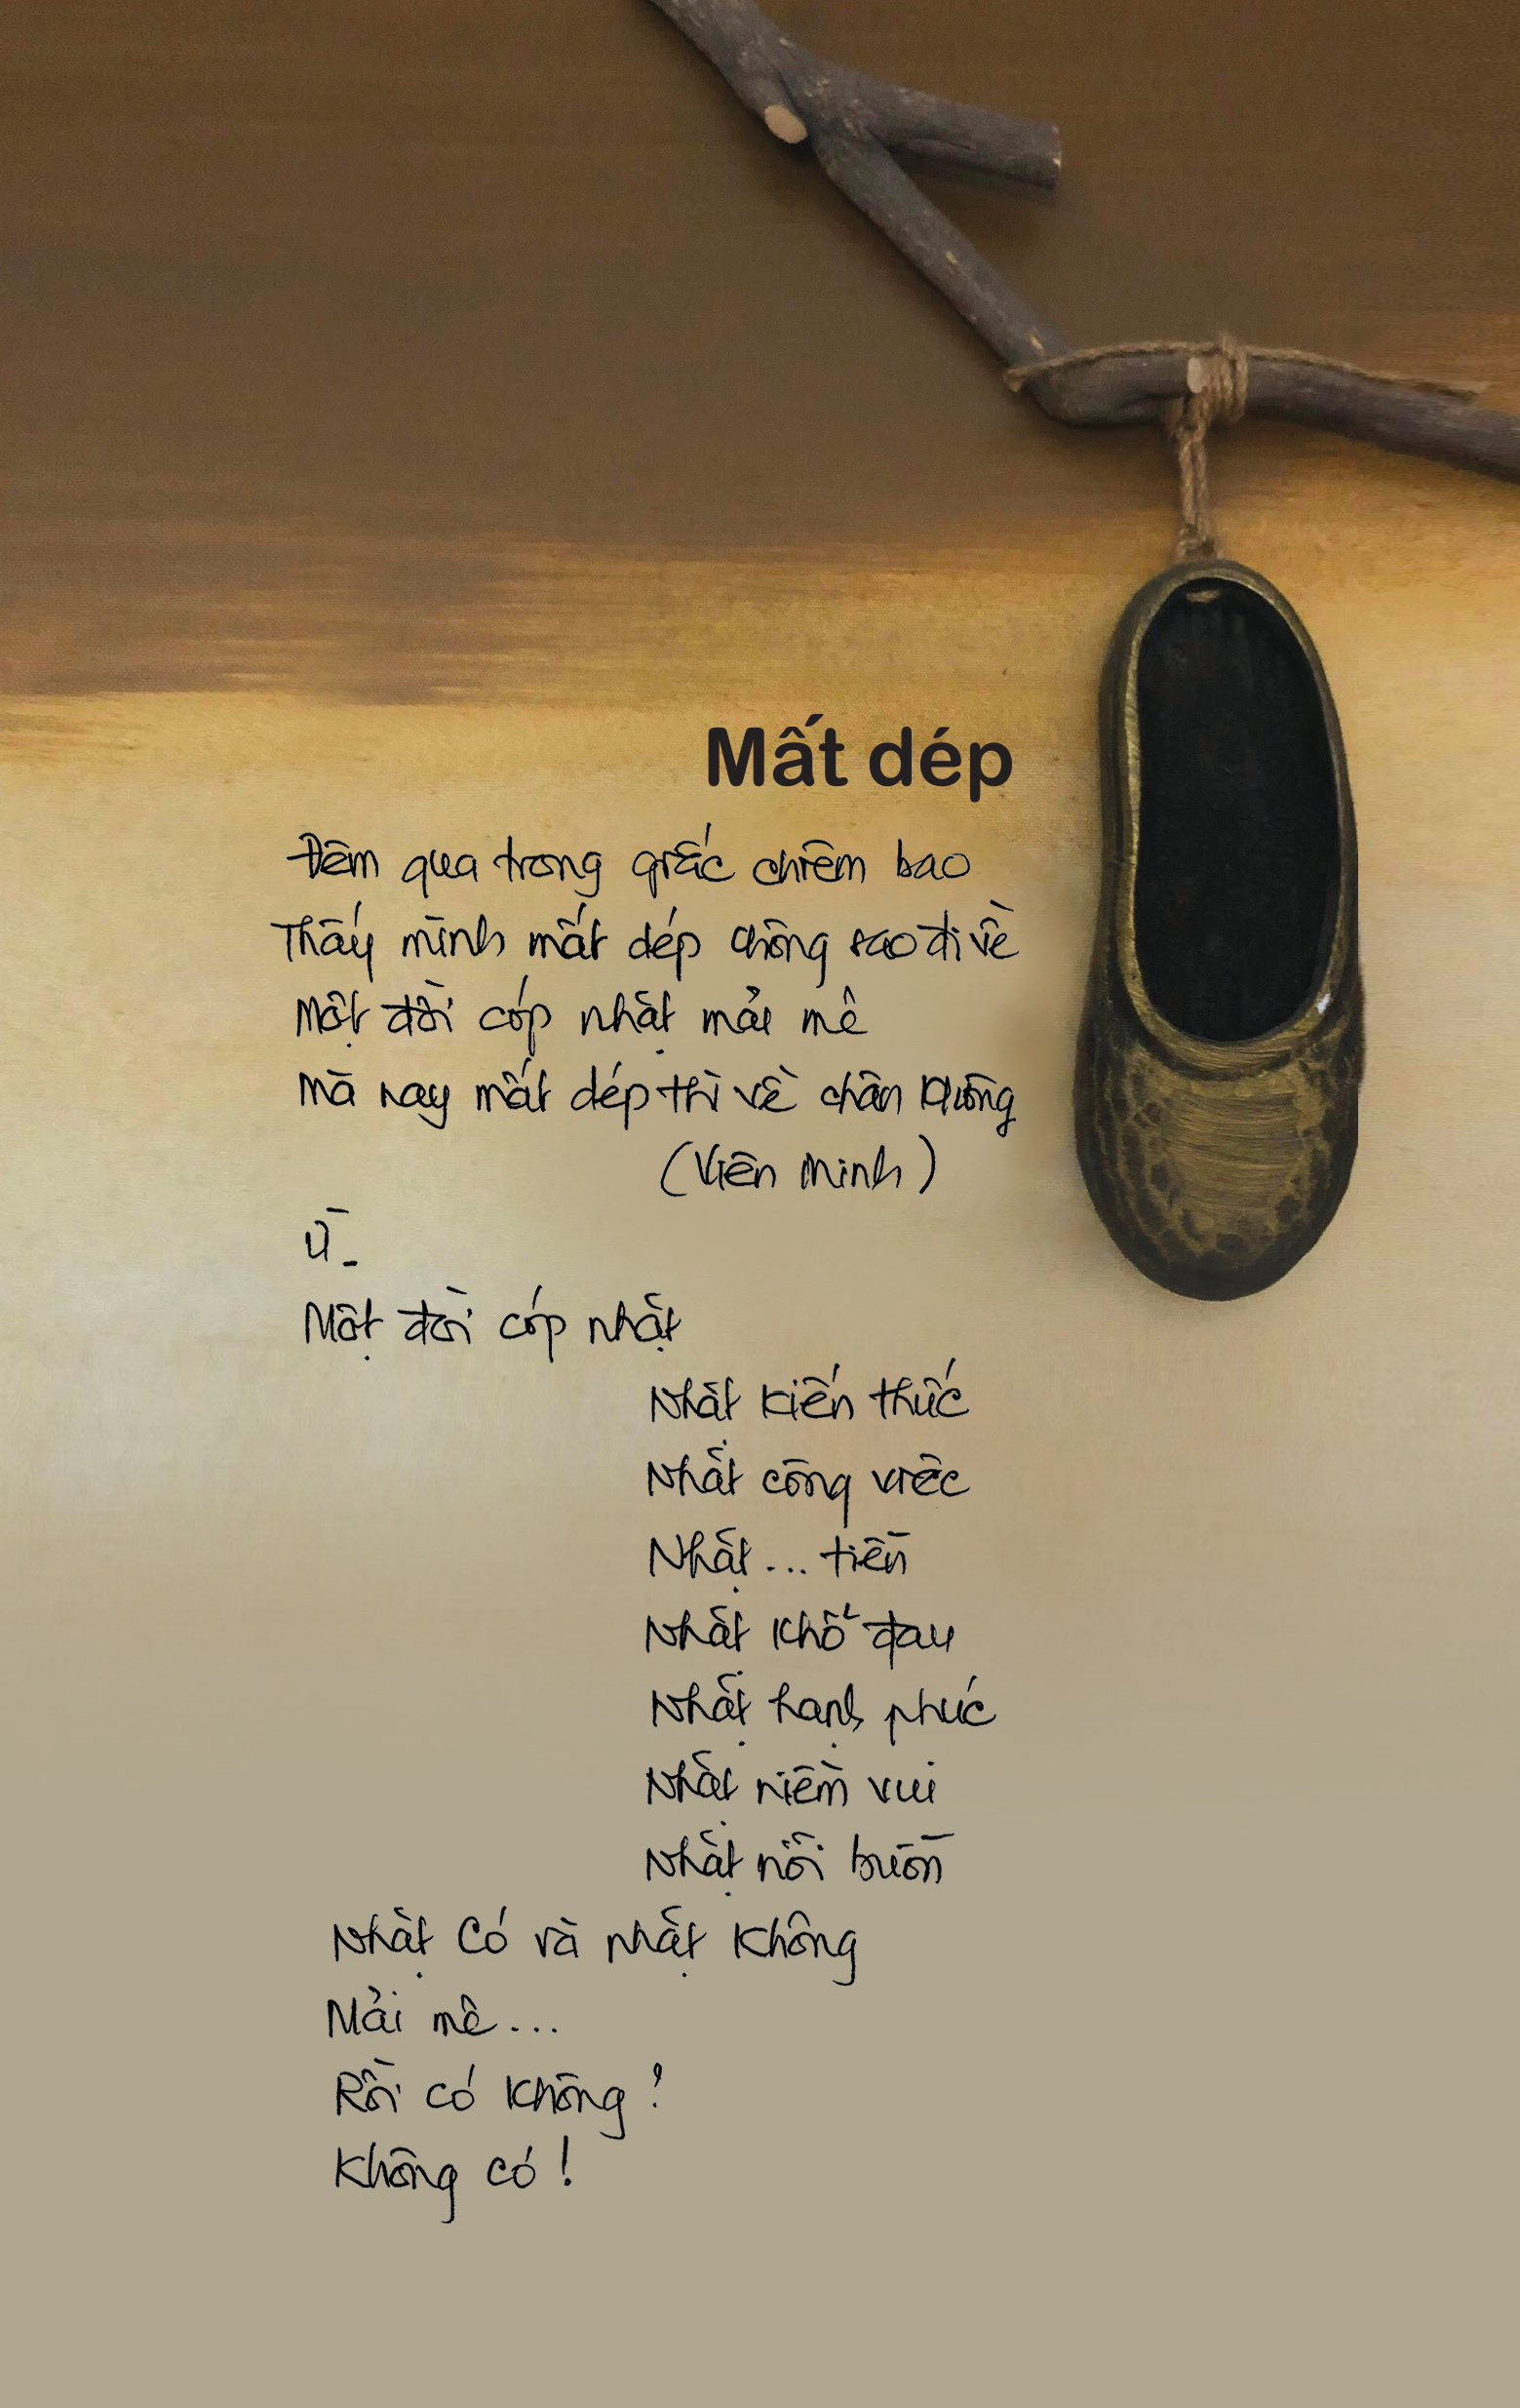 Mất dép
Đêm qua trong giấc chiêm bao
Thấy mình mất dép chông sao đi về
Một đời cóp nhặt mải mê
Mà nay mất dép thì về chân không
(Viên Minh)
Ừ_
Một đời cóp nhặt
Nhặt kiến thức
Nhặt công việc
Nhặt... tiền
Nhặt khổ đau
Nhặt hạnh phúc
Nhặt niềm vui
Nhặt nỗi buồn
Nhặt Có và nhặt Không
Mải mê...
Rồi có không?
Không có!